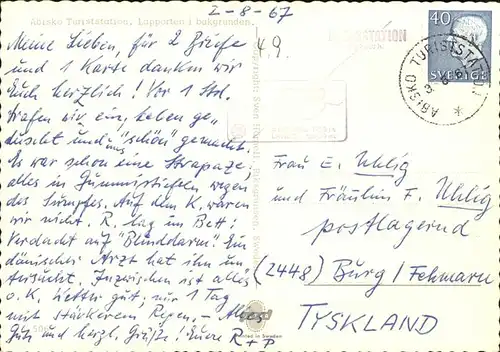 Abisko Turiststation, Lapporten i bakgrunden.
2-8-67
4.9.
Meine Lieben, für 2 Briefe
und 1 Karte danken wir
Euch herzlich! Vor 1 Std.
trafen wir ein, haben ge„
duscht und uns „schön" gemacht.
Es war schon eine Strapaze,
alles in Gummistiefeln wegen
des Sumpfes. Auf dem K. waren
wir nicht. R. lag im Bett:
Verdacht auf "Blinddarm". Ein
dänischer Arzt hat ihn un
tersucht. Inzwischen ist alles
o.K. Wetter gut, nur 1 Tag
mit stärkerem Regen. – Alles
Gute und herzl. Grüße! Eure R + P
40
SVERIGE
ABISKO TURISTSTATION
Frau E. Uhlig
und Fräulein F. Uhlig
postlagernd
(2448) Burg/Fehmarn
TYSKLAND
Printed in Sweden